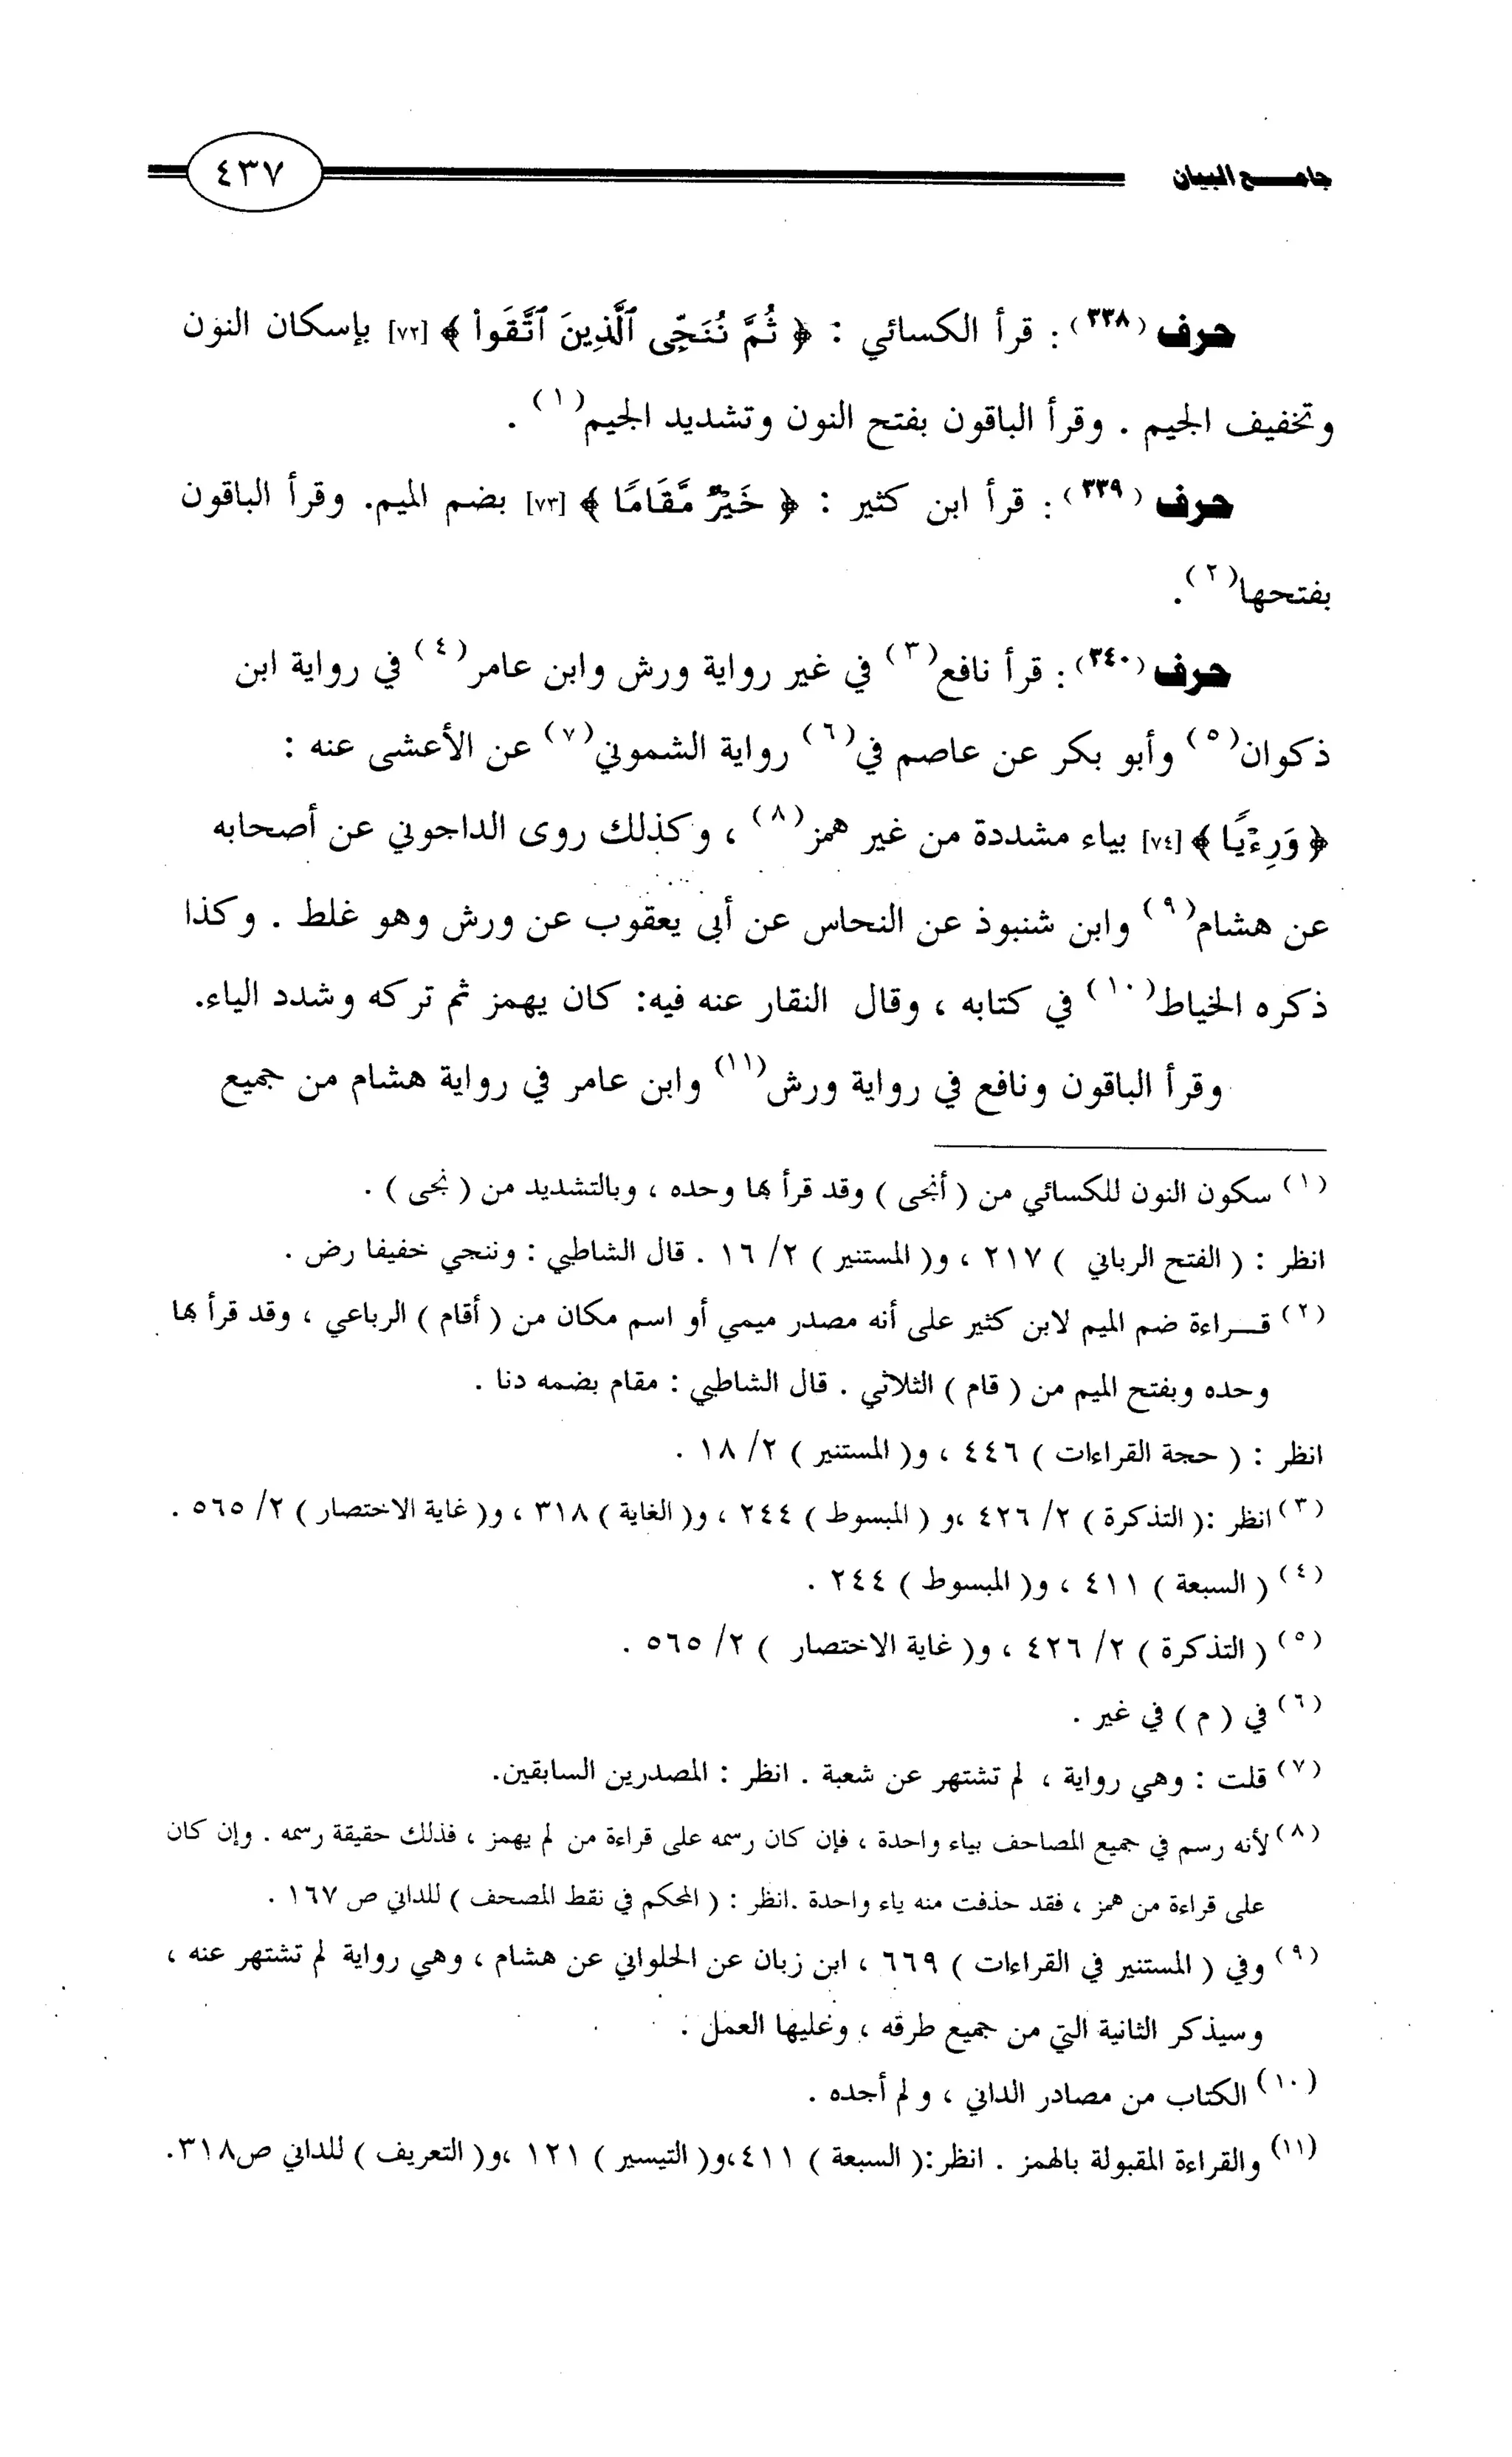 جامـع البيان
٤٣٧
حرف (٣٣٨) : قرأ الكسائي : ﴿ ثُمَّ نُنَجِّى ٱلَّذِينَ ٱتَّقَوا۟ ﴾ [٧٢] بإسكان النون
وتخفيف الجيم . وقرأ الباقون بفتح النون وتشديد الجيم(١) .
حرف (٣٣٩) : قرأ ابن كثير : ﴿ خَيْرٌ مَّقَامًا ﴾ [٧٣] بضم الميم. وقرأ الباقون
بفتحها(٢).
حرف (٣٤٠) : قرأ نافع(٣) في غير رواية ورش وابن عامر(٤) في رواية ابن
ذكوان(٥) وأبو بكر عن عاصم في(٦) رواية الشموني(٧) عن الأعشى عنه :
﴿ وَرِءْيًا ﴾ [٧٤] بياء مشددة من غير همز(٨) ، وكذلك روى الداجوني عن أصحابه
عن هشام(٩) وابن شنبوذ عن النحاس عن أبي يعقوب عن ورش وهو غلط . وكذا
ذكره الخياط(١٠) في كتابه ، وقال النقار عنه فيه: كان يهمز ثم تركه وشدد الياء.
وقرأ الباقون ونافع في رواية ورش(١١) وابن عامر في رواية هشام من جميع
(١) سكون النون للكسائي من ( أنجى ) وقد قرأ بها وحده ، وبالتشديد من ( نجى ) .
انظر : ( الفتح الرباني ) ٢١٧ ، و( المستنير ) ٢/ ١٦ . قال الشاطبي : وننجي خفيفا رض .
(٢) قـراءة ضم الميم لابن كثير على أنه مصدر ميمي أو اسم مكان من ( أقام ) الرباعي ، وقد قرأ بها
وحده وبفتح الميم من ( قام ) الثلاثي . قال الشاطبي : مقام بضمه دنا .
انظر : ( حجة القراءات ) ٤٤٦ ، و( المستنير ) ٢/ ١٨ .
(٣) انظر :( التذكرة ) ٢/ ٤٢٦ ،و ( المبسوط ) ٢٤٤ ، و( الغاية ) ٣١٨ ، و( غاية الاختصار ) ٢/ ٥٦٥ .
(٤) ( السبعة ) ٤١١ ، و( المبسوط ) ٢٤٤ .
(٥) ( التذكرة ) ٢/ ٤٢٦ ، و( غاية الاختصار ) ٢/ ٥٦٥ .
(٦) في ( م ) في غير .
(٧) قلت : وهي رواية ، لم تشتهر عن شعبة . انظر : المصدرين السابقين.
(٨) لأنه رسم في جميع المصاحف بياء واحدة ، فإن كان رسمه على قراءة من لم يهمز ، فذلك حقيقة رسمه . وإن كان
على قراءة من همز ، فقد حذفت منه ياء واحدة .انظر : ( المحكم في نقط المصحف ) للداني ص ١٦٧ .
(٩) وفي ( المستنير في القراءات ) ٦٦٩ ، ابن زبان عن الحلواني عن هشام ، وهي رواية لم تشتهر عنه ،
وسيذكر الثانية التي من جميع طرقه ، وعليها العمل .
(١٠) الكتاب من مصادر الداني ، و لم أجده .
(١١) والقراءة المقبولة بالهمز . انظر:( السبعة ) ٤١١،و( التيسير ) ١٢١ ،و( التعريف ) للداني ص٣١٨.